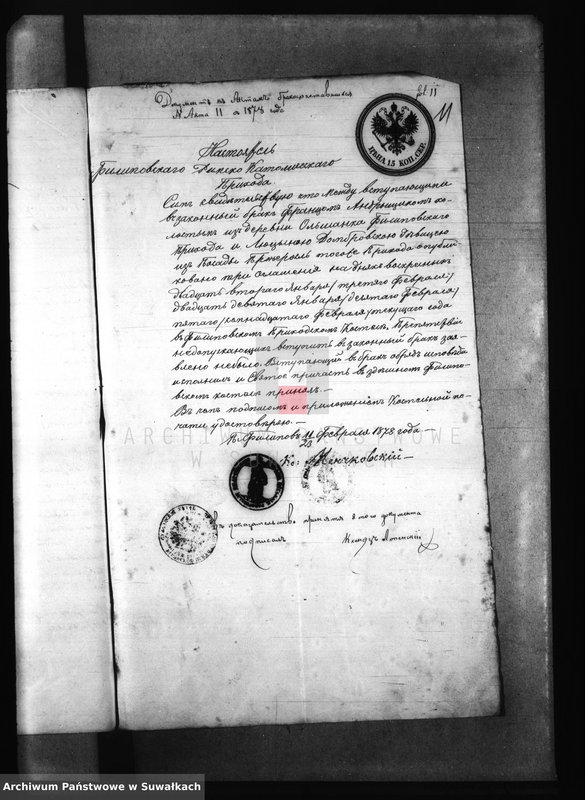 Документъ къ Актамъ бракосочетавшихся
№ Акта 11 а 1878 года
11
ЦѢНА 15 КОП. СЕР.
Настоятель
Филиповскаго Римско Католическаго
Прихода
Симъ свидѣтельствую что между вступающими
въ законный бракъ Францомъ хо-
лостымъ изъ деревни Ольшанка Филиповскаго
Прихода и Люцыною Домбровскою дѣвицею
изъ Посады Пржеросль того же Прихода опубли
ковано три оглашенія на дняхъ воскресныхъ
двадцать втораго Января/третяго Февраля/
двадцать девятаго Января/десятаго Февраля/
пятаго/семнадцатаго Февраля/текущаго года
въ Филиповскомъ Приходскомъ Костелѣ. Препятствій
недопускающихъ вступить въ законный бракъ зая-
влено небыло. Вступающій въ бракъ обрядъ исповѣди
исполнилъ и Святое причастъ въ здѣшномъ Филипо-
вскомъ костелѣ принялъ.—
Въ томъ подписомъ и приложеніемъ Костельной пе-
чати удостовѣряю.—
П. Филиповъ 11/23 Февраля 1878 года.—
Въ доказательство принятія этого документа
подписалъ Ксендзъ
ARCHIWUM PAŃSTWOWE
W SUWAŁKACH
Archiwum Państwowe w Suwałkach